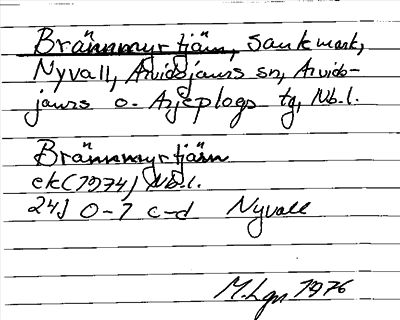 Brännmyrtjärn, Sankmark,
Nyvall, Arvidsjaurs sn, Arvids-
jaurs o. Arjeplogs tg, Nb.l.
Brännmyrtjärn
ek (1974) Nb.l.
24J 0-1 c-d Nyvall
M. Lgn 1976